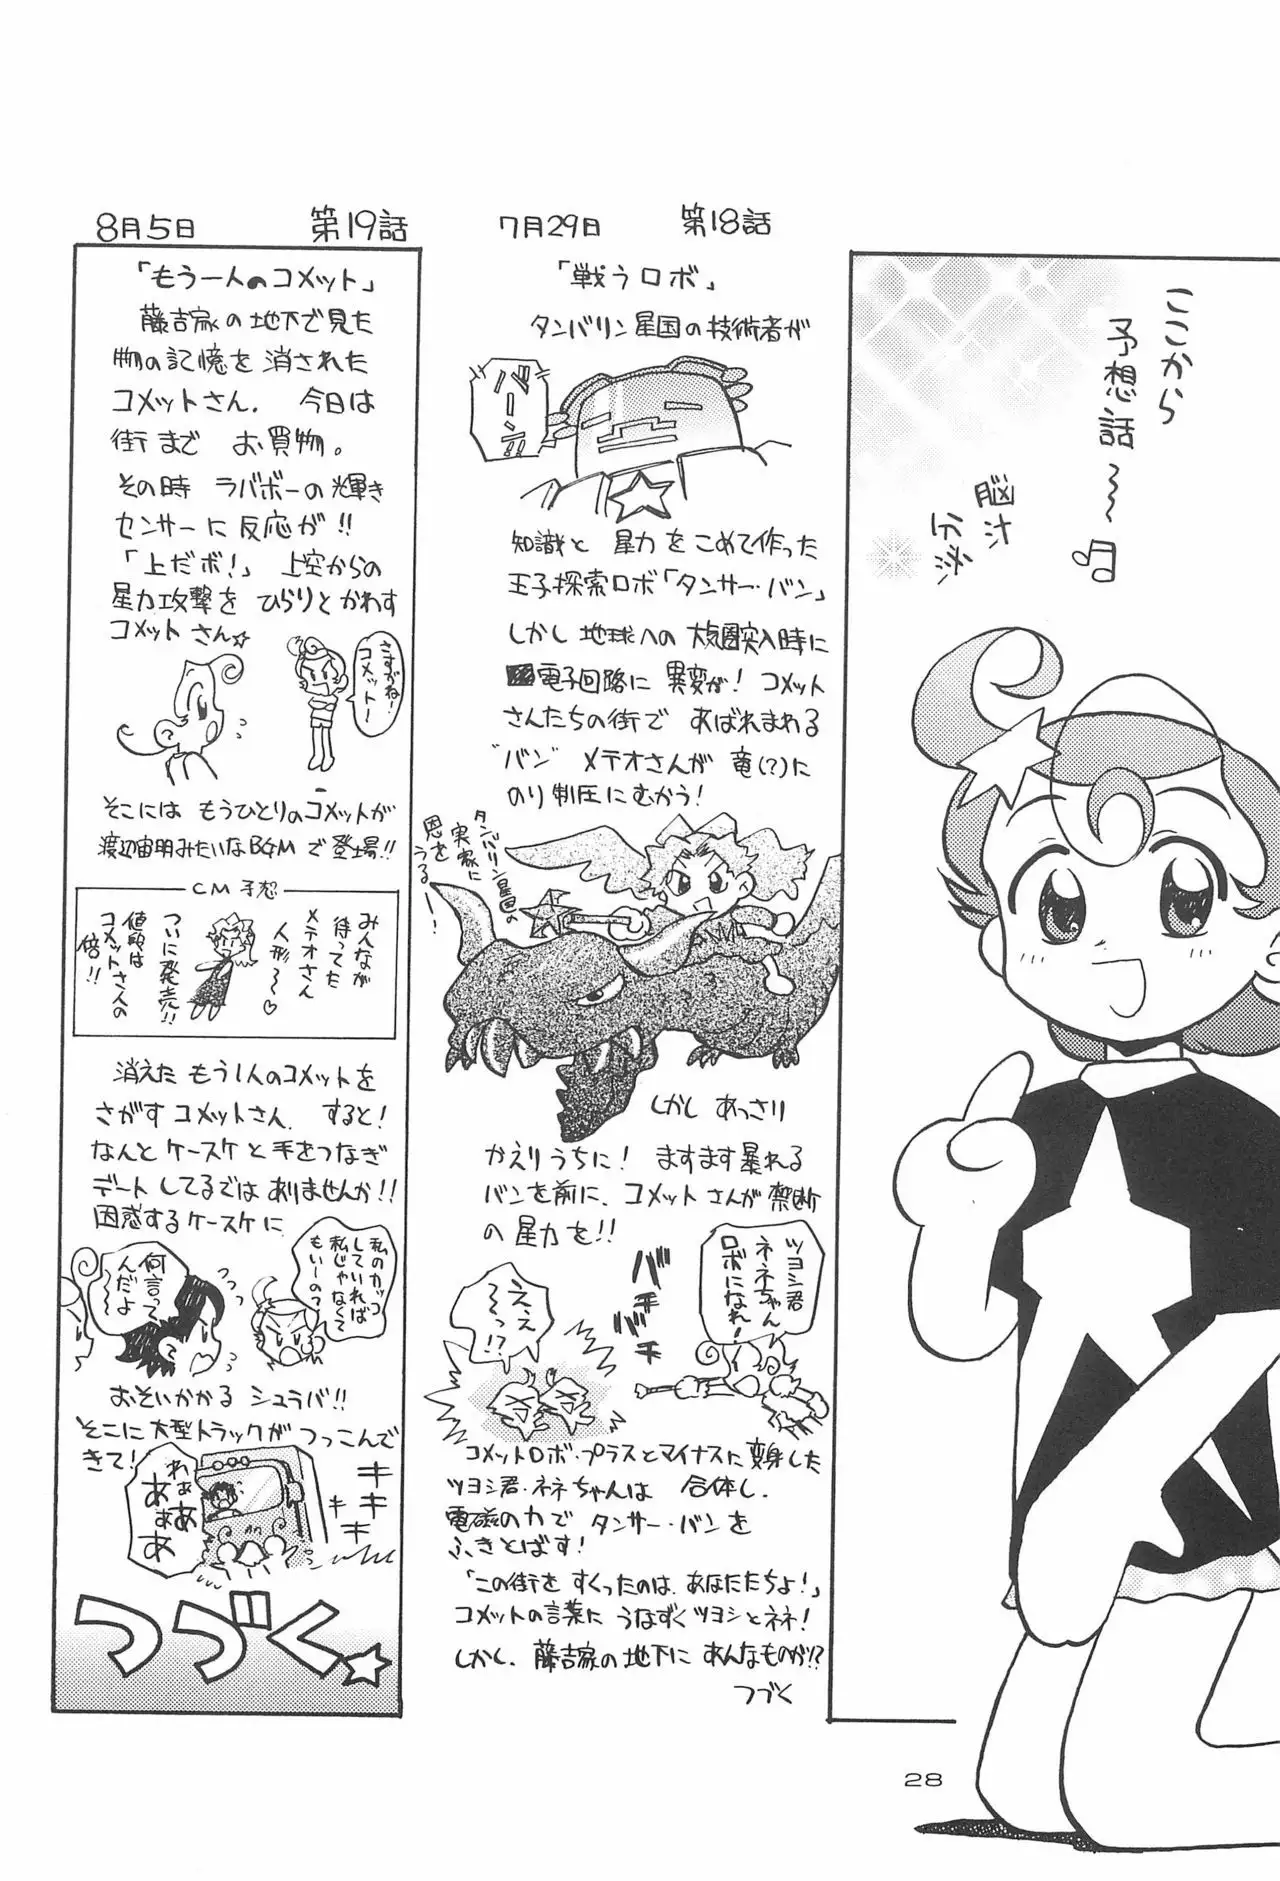 ここから
予想話〜〜♪
脳汁
分泌
7月29日　第18話
「戦うロボ」
タンバリン星国の技術者が
バーン!!
知識と 星力をこめて作った
王子探索ロボ「タンサー・バン」
しかし 地球への 大気圏突入時に
電子回路に 異変が! コメット
さんたちの街で あばれまわる
"バン" メテオさんが 竜(?)に
のり 制圧にむかう!
タンバリン星国の
実家に
恩をうる
ーー!
しかし あっさり
かえりうちに! ますます暴れる
バンを前に、コメットさんが 禁断
の 星力を!!
ツヨシ君
ネネちゃん
ロボになれ!
バチ
バチ
バチ
ええ
〜〜っ!?
コメットロボ・プラスとマイナスに変身した
ツヨシ君・ネネちゃんは 合体し、
電磁の力で タンサー・バンを
ふきとばす!
「この街を すくったのは、あなたたちよ!」
コメットの言葉に うなずくツヨシとネネ!
しかし、藤吉家の地下に あんなものが!?
つづく
8月5日　第19話
「もう一人のコメット」
藤吉家の地下で見た
物の記憶を消された
コメットさん. 今日は
街まで お買物。
その時 ラバボーの輝き
センサーに反応が!!
「上だボ!」 上空からの
星力攻撃を ひらりとかわす
コメットさん☆
さすがね!
コメットー
そこには もうひとりのコメットが
渡辺宙明みたいなBGMで登場!!
CM予想
みんなが
待ってた
メテオさん
人形〜〜♡
ついに発売!!
値段は
コメットさんの
倍!!
消えた もう1人のコメットを
さがすコメットさん. すると!
なんと ケースケと手をつなぎ
デートしてるではありませんか!!
困惑するケースケに
私のカッコ
していれば
私じゃなくて
もいーの?
何言って
んだよ
〜〜
おそいかかる シュラバ!!
そこに大型トラックが つっこんで
きて!
わぁ
あぁ
あぁ
あ
キキキ
つづく☆
28